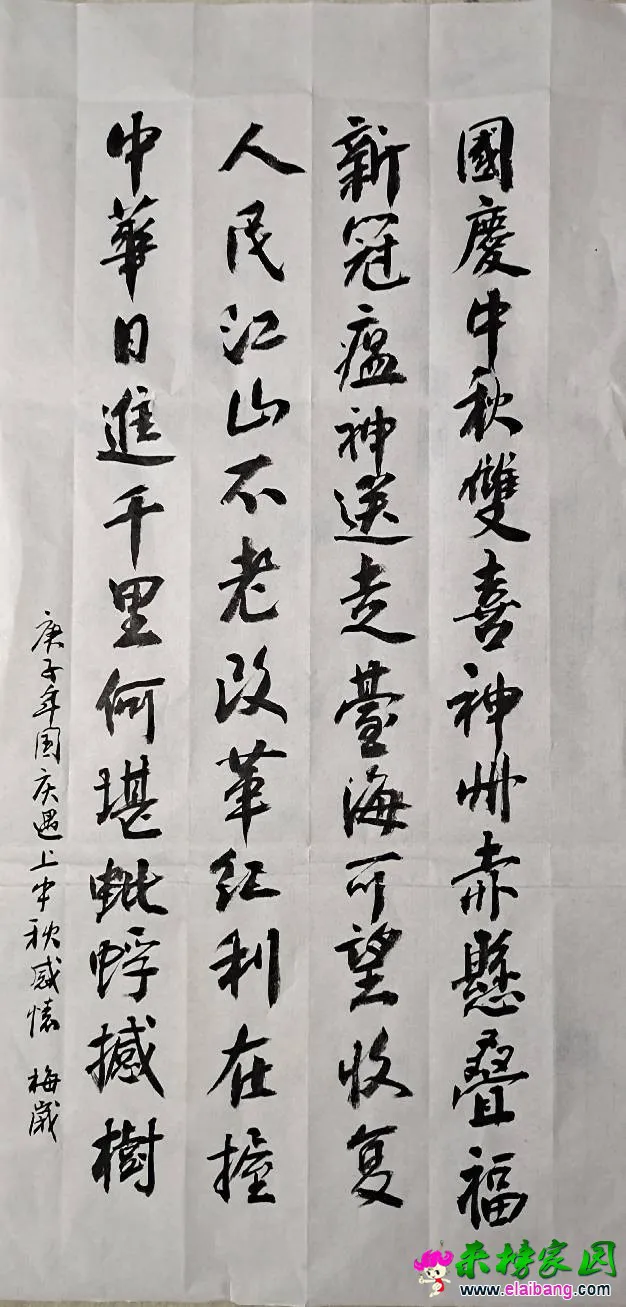 國慶中秋雙喜神州赤懸疊福
新冠瘟神送走臺海可望收复
人民江山不老改革红利在握
中華日進千里何堪蚍蜉撼樹
庚子年国庆遇上中秋感懷 梅崴
来榜家园
www.elaibang.com